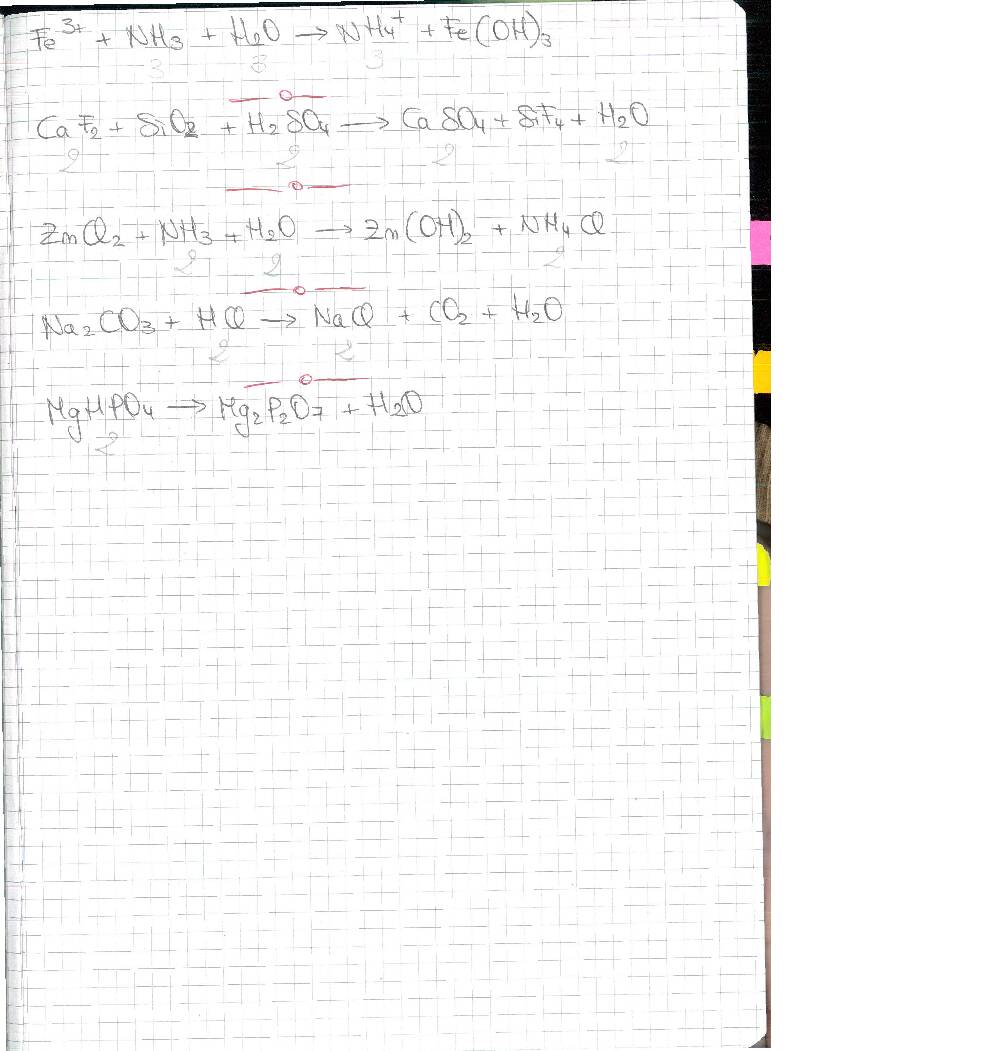 Fe³⁺ + NH₃ + H₂O → NH₄⁺ + Fe(OH)₃
3 3 3
CaF₂ + SiO₂ + H₂SO₄ → CaSO₄ + SiF₄ + H₂O
2 2 2 2
ZnCl₂ + NH₃ + H₂O → Zn(OH)₂ + NH₄Cl
2 2 2
Na₂CO₃ + HCl → NaCl + CO₂ + H₂O
2 2
MgHPO₄ → Mg₂P₂O₇ + H₂O
2